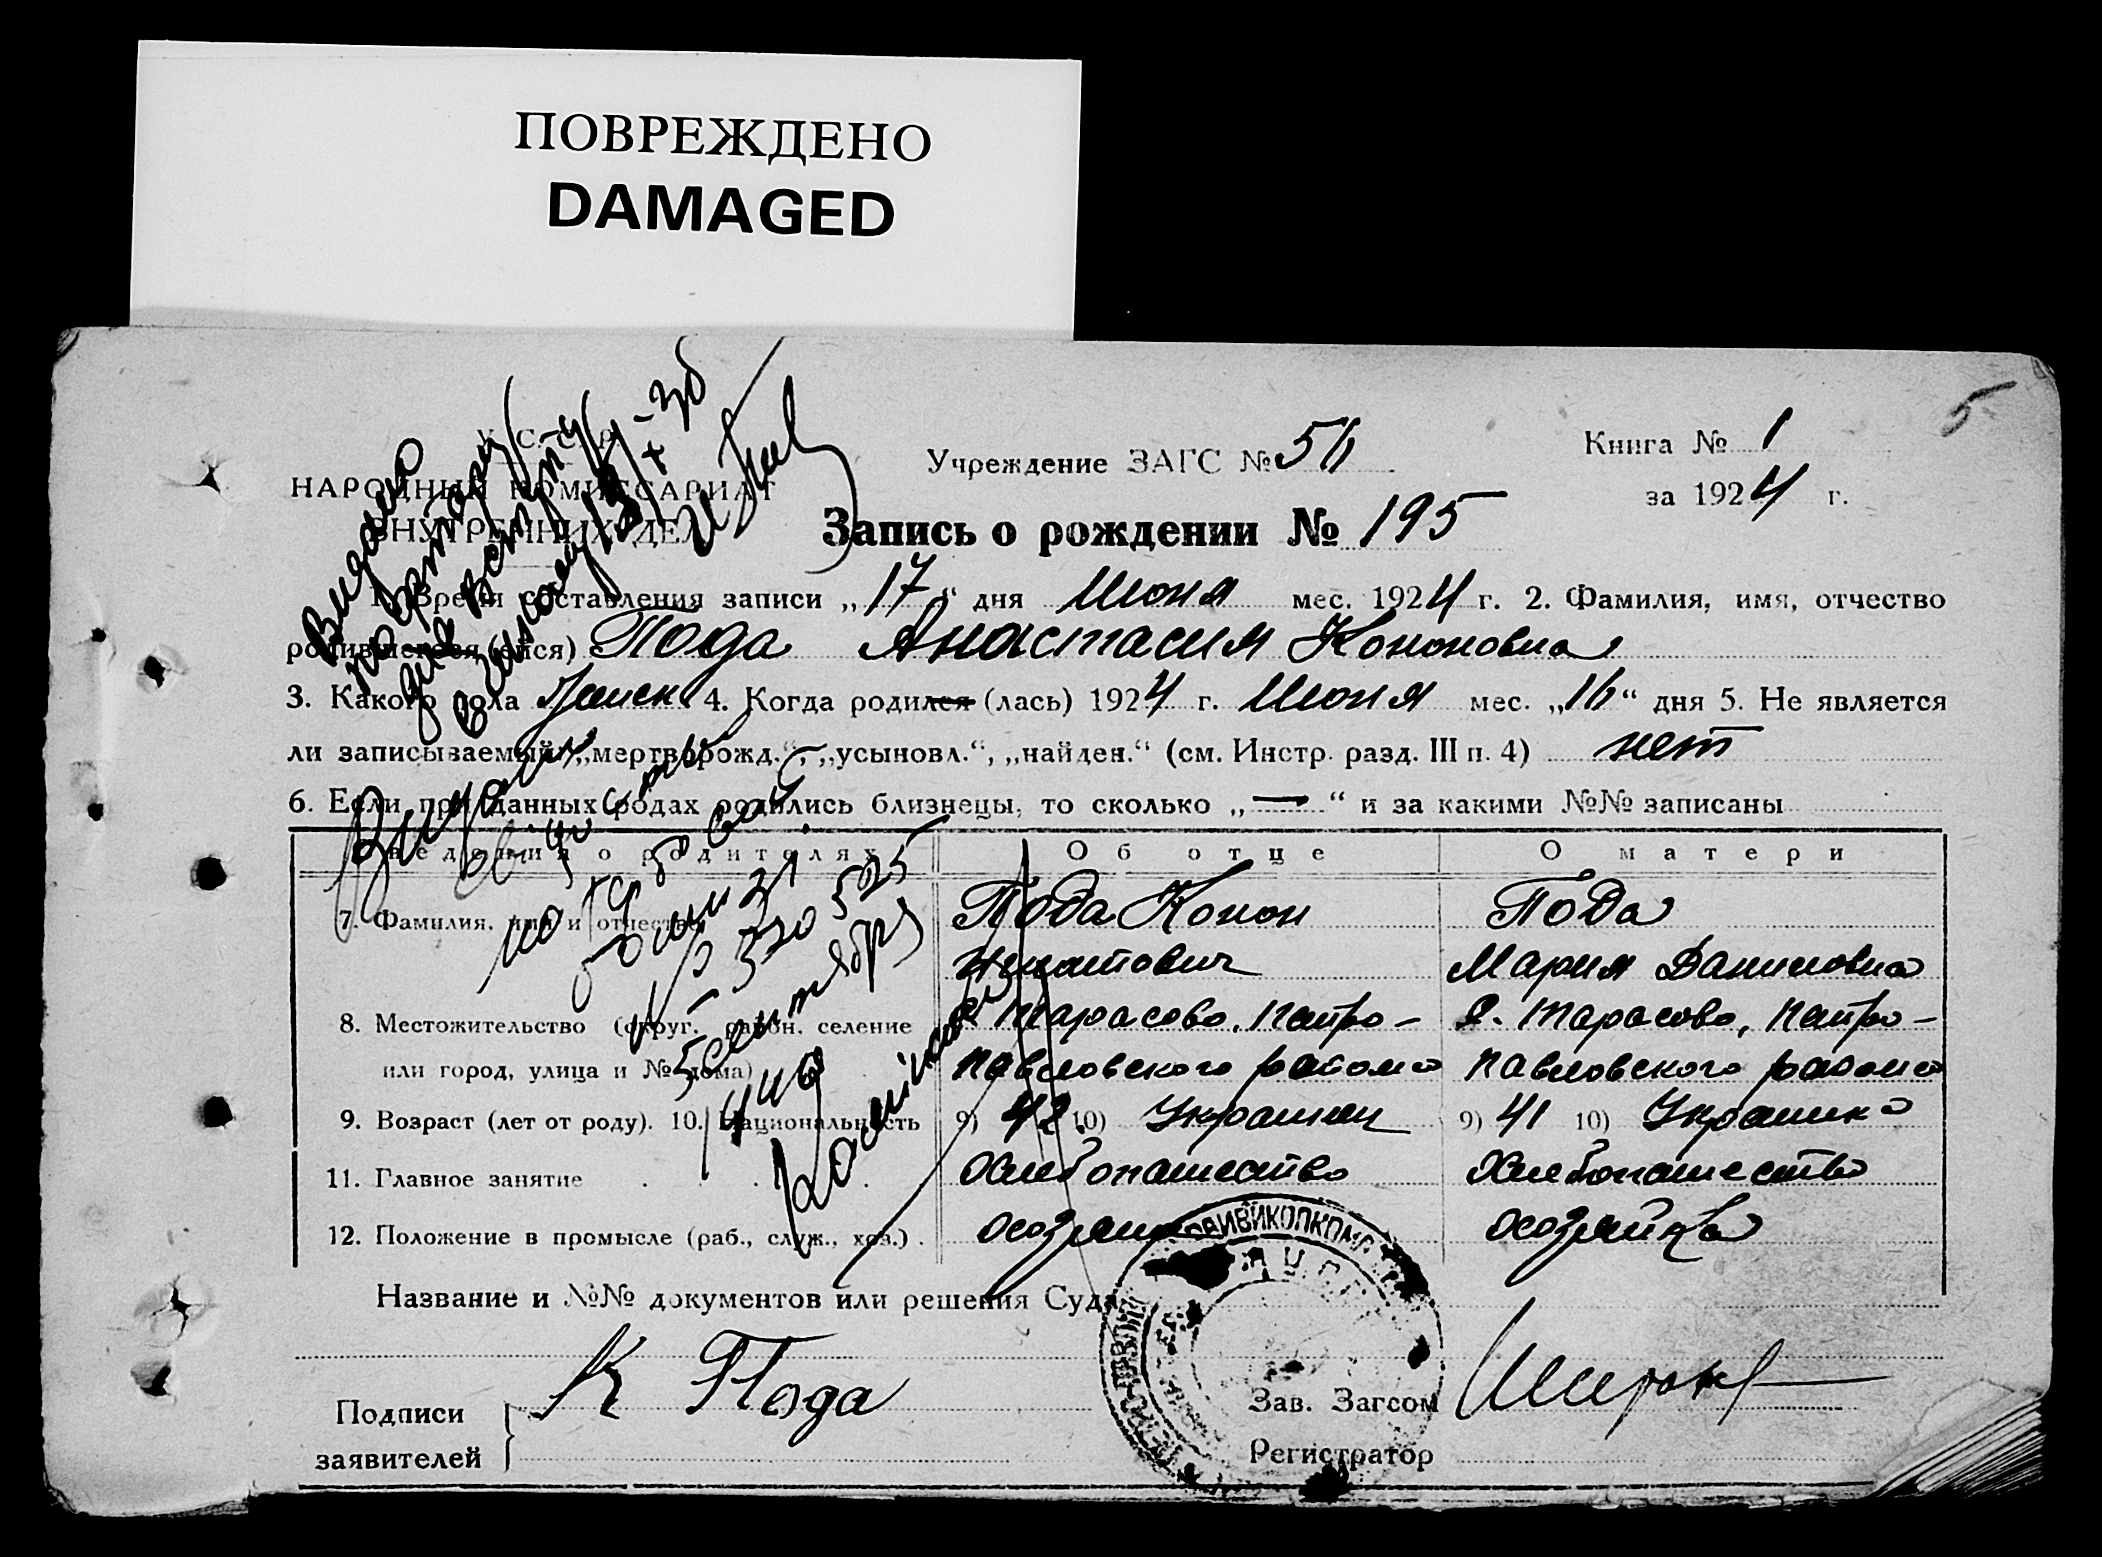 ПОВРЕЖДЕНО
DAMAGED
5
У. С. С. Р.
НАРОДНЫЙ КОМИССАРИАТ
ВНУТРЕННИХ ДЕЛ
Учреждение ЗАГС №
Книга № 1
за 1924 г.
Запись о рождении № 195
1. Время составления записи „17“ дня Июня мес. 1924 г. 2. Фамилия, имя, отчество
родившегося (ейся) Пода Анастасия Кононовна
3. Какого пола Женск 4. Когда родился (лась) 1924 г. Июня мес. „16“ дня 5. Не является
ли записываемый „мертворожд.“, „усыновл.“, „найден.“ (см. Инстр. разд. III п. 4) нет
6. Если при данных родах родились близнецы, то сколько „—“ и за какими №№ записаны
Сведения о родителях
Об отце
О матери
7. Фамилия, имя и отчество
Пода Конон
Пода
Мария Даниловна
8. Местожительство (округ, район, селение
или город, улица и № дома)
с. Тарасово, Петро-
павловского района
с. Тарасово, Петро-
павловского района
9. Возраст (лет от роду). 10. Национальность
9) 42 10) Украинец
9) 41 10) Украинка
11. Главное занятие
Хлебопашество
Хлебопашество
12. Положение в промысле (раб., служ., хоз.)
хозяин
хозяйка
Название и №№ документов или решения Суда
Подписи
заявителей
К Пода
Зав. Загсом
Регистратор
Выдано
5 сентября